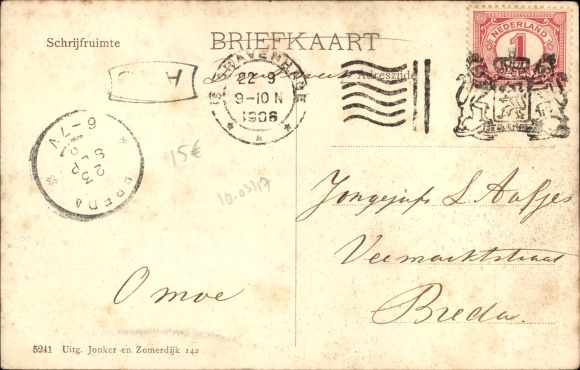 Schrijfruimte
BRIEFKAART
Adreszijde
NEDERLAND
1
's GRAVENHAGE
22-9
9-10 N
1906
A
BREDA
23 S
6-7V
15€
10-03/17
Jongejuf L Aafjes
Veemarktstraat
Breda.
Omoe
5241 Uitg. Jonker en Zomerdijk 142